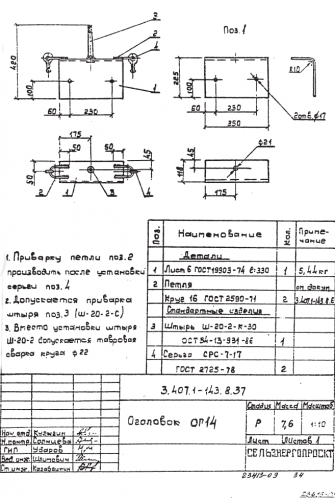 Поз. 1
3
2
4
1
420
100
60
230
225
100
60
230
350
R10
2отв. ф17
175
50
50
45
50
2
1
3
4
ф21
45
118
175
1. Приварку петли поз. 2
производить после установки
серьги поз. 4
2. Допускается приварка
штыря поз. 3 (Ш-20-2-С)
3. Вместо установки штыря
Ш-20-2 допускается тавровая
сварка круга ф22
Поз. Наименование Кол. Приме-
чание
Детали
1 Лист 6 ГОСТ 19903-74 ℓ=330 1 5,44кг
2 Петля
Круг 16 ГОСТ 2590-71 2 3.407.1-143.8.6
Стандартные изделия
3 Штырь Ш-20-2-К-30
ОСТ 34-13-931-86 1
4 Серьга СРС-7-17
ГОСТ 2725-78 2
3.407.1-143.8.37
Оголовок ОГ14
Стадия Масса Масштаб
Р 7,6 1:10
Лист Листов 1
СЕЛЬЭНЕРГОПРОЕКТ
Нач. отд.
Н. контр. Солнцева
ГИП Ударов
Вед. инж.
Ст. инж.